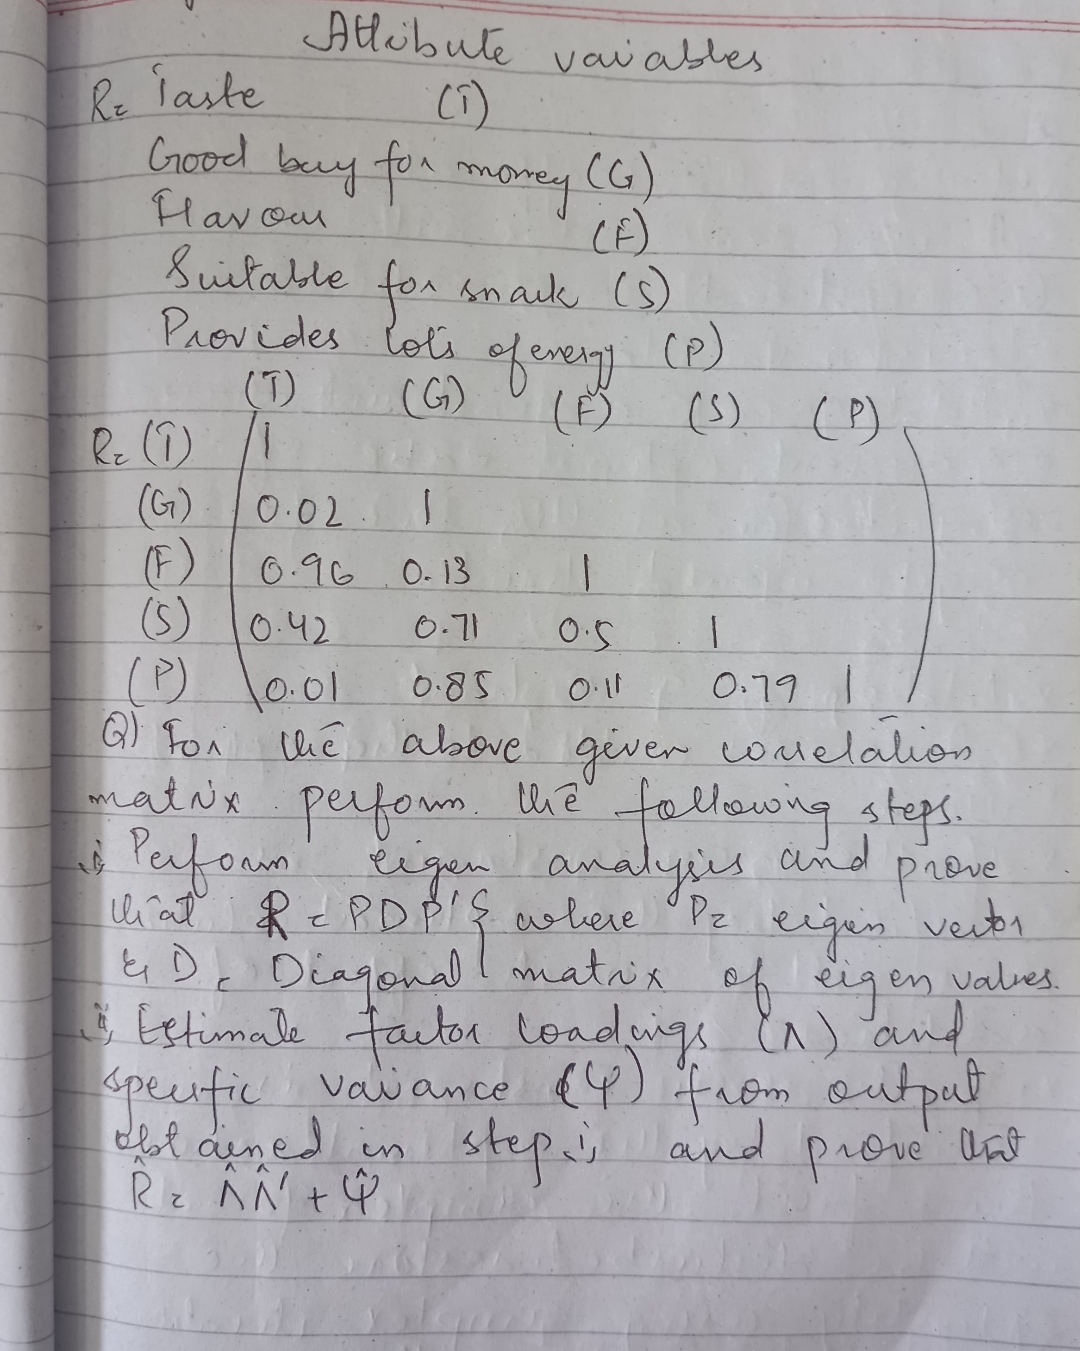 Attribute variables
R= Taste (T)
Good buy for money (G)
Flavour (F)
Suitable for snack (S)
Provides lots of energy (P)
(T) (G) (F) (S) (P)
R= (T) 1
(G) 0.02 1
(F) 0.96 0.13 1
(S) 0.42 0.71 0.5 1
(P) 0.01 0.85 0.11 0.79 1
Q) For the above given correlation
matrix perform the following steps.
i, Perform eigen analysis and prove
that R = PDP' { where P= eigen vector
& D = Diagonal matrix of eigen values.
ii, Estimate factor loadings (Λ) and
specific variance (Ψ) from output
obtained in step i, and prove that
R̂ = Λ̂Λ̂' + Ψ̂